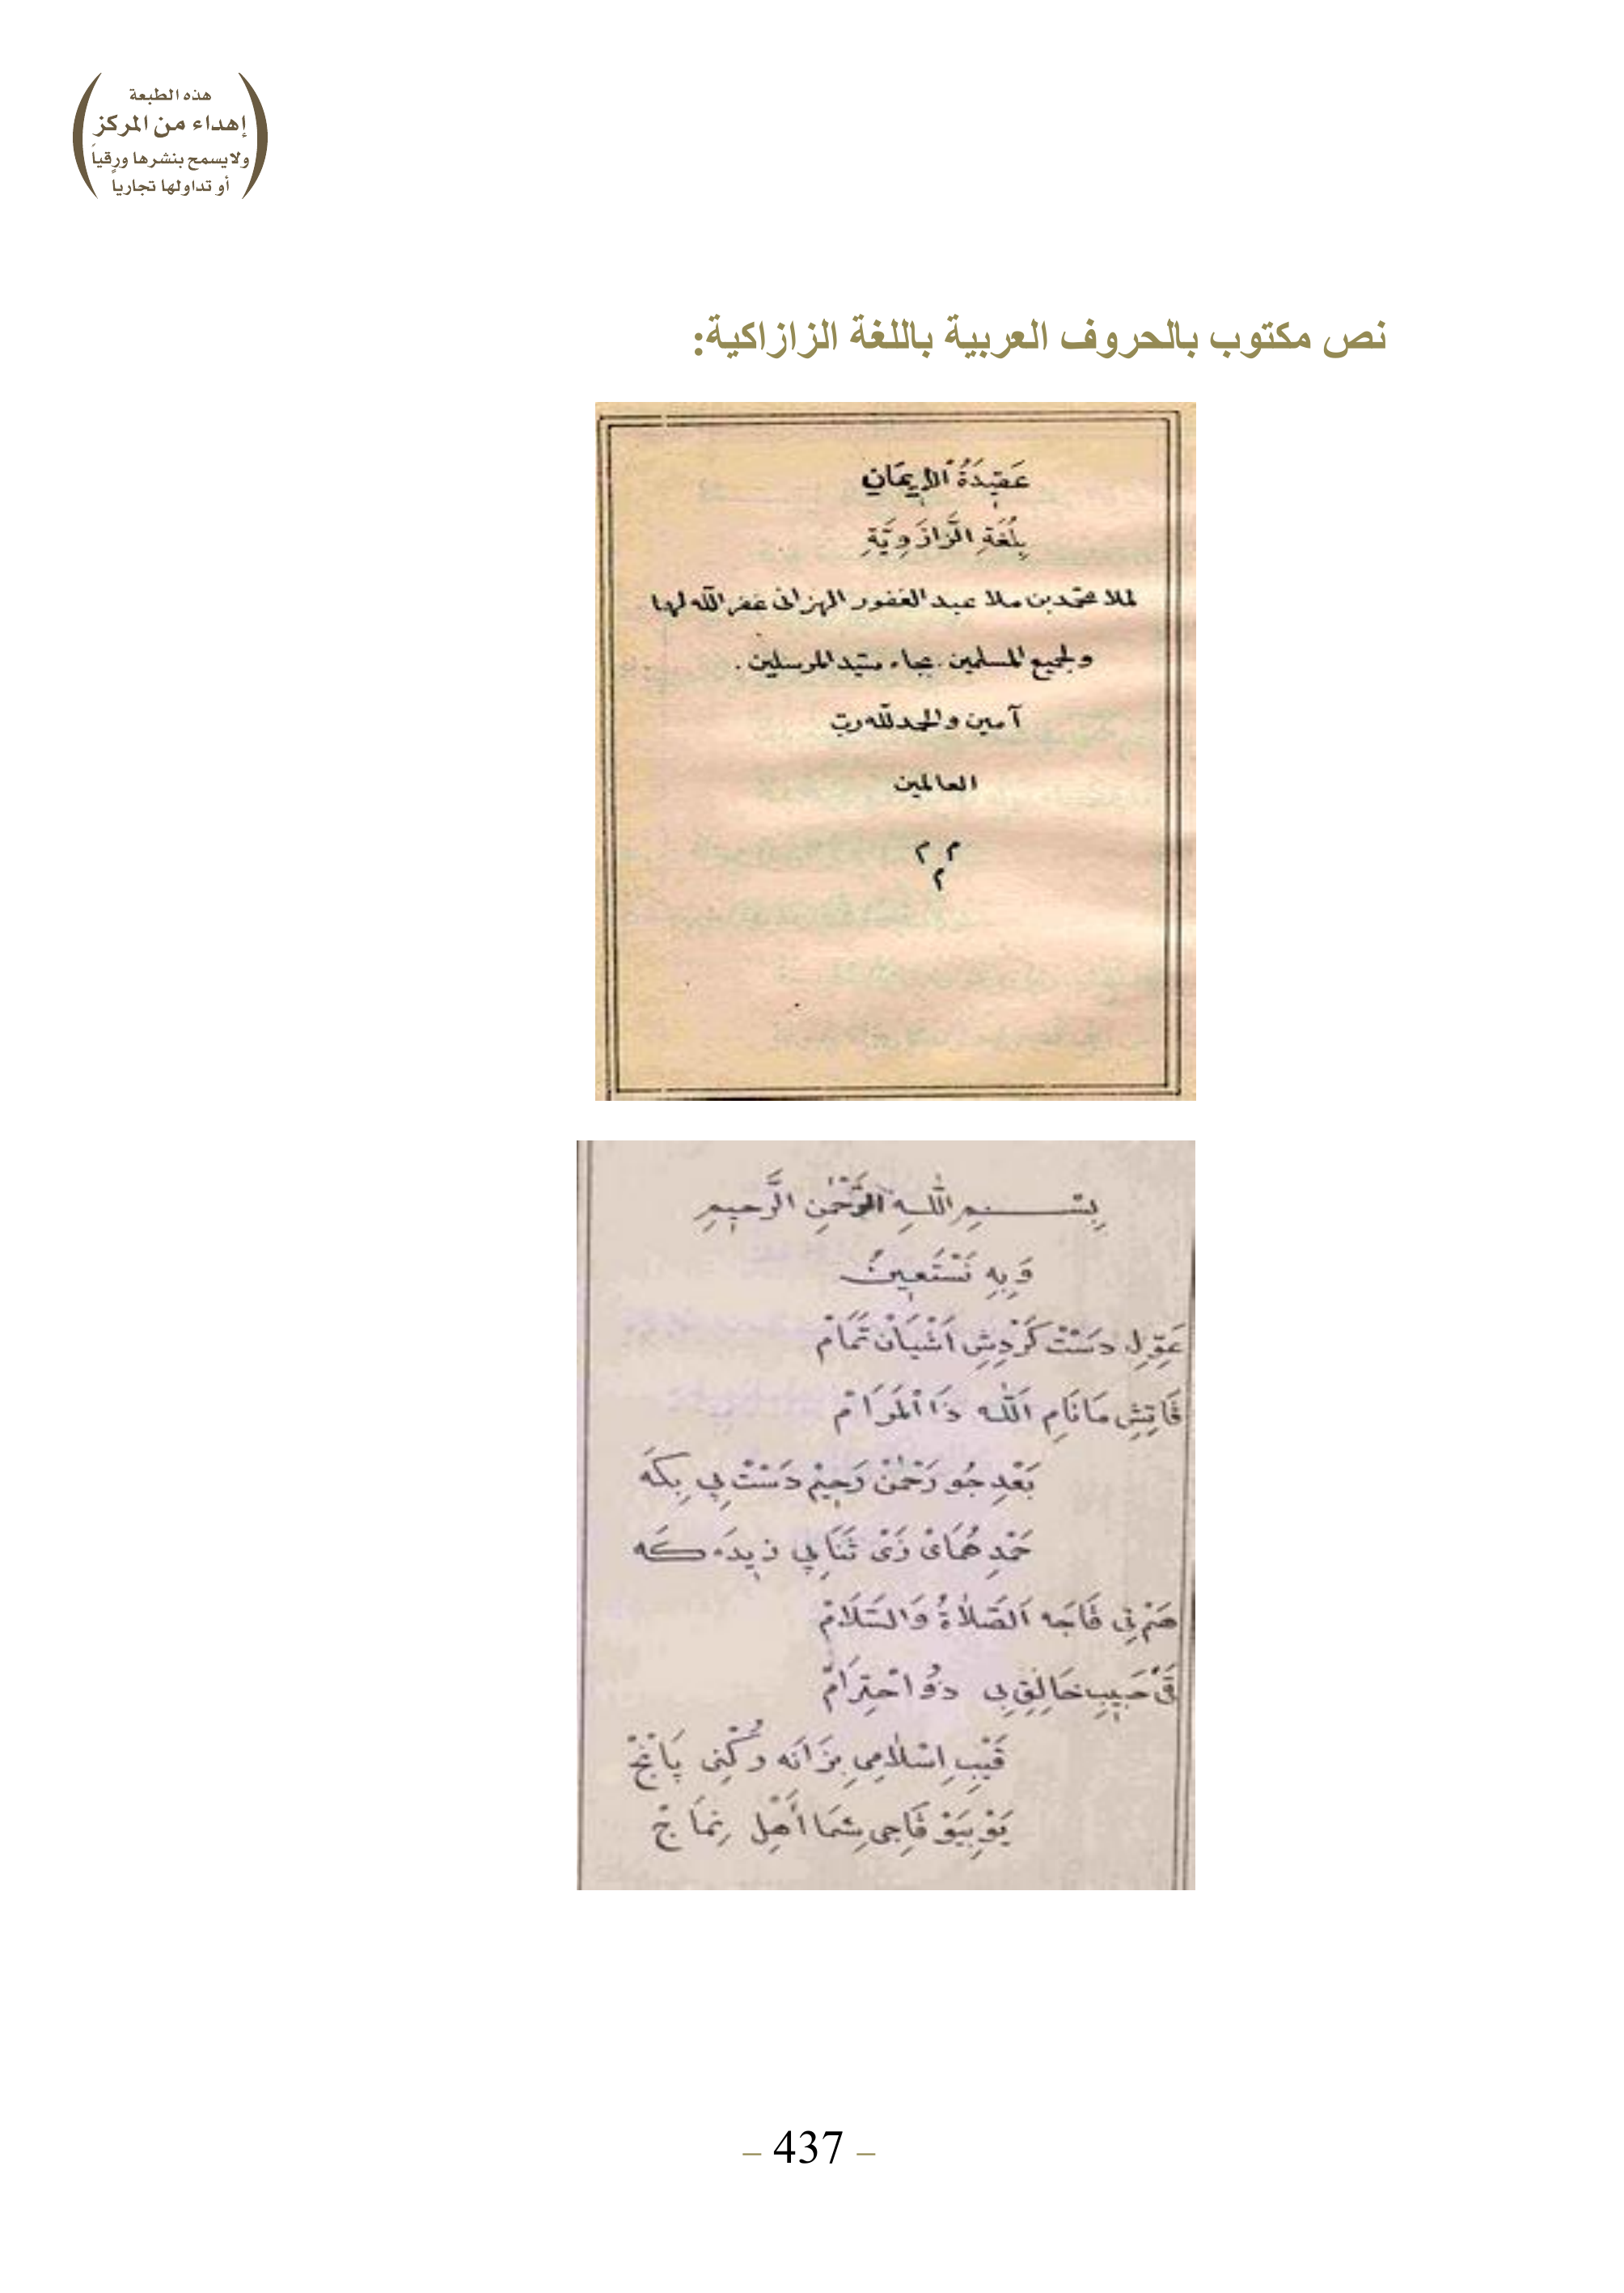 هذه الطبعة
إهداء من المركز
ولايسمح بنشرها ورقياً
أو تداولها تجارياً
نص مكتوب بالحروف العربية باللغة الزازاكية:
عَقِيدَةُ الْإِيمَانِ
بِلُغَةِ الزَّازَوِيَّةِ
لملا محمّد بن ملا عبد الغفور الهزانى غفر اللّه لهما
ولجميع المسلمين. بجاه سيّد المرسلين.
آمين والحمد للّه ربّ
العالمين
م م
م
بِسْمِ اللّٰهِ الرَّحْمٰنِ الرَّحِيمِ
وَبِهِ نَسْتَعِينُ
دَسْتْ كَرْدِشِ اَشْيَانْ تَمَامْ
مَانَامِ اَللّٰه ذَا الْمَرَامْ
بَعْدِ جُو رَحْمٰنْ رَحِيمْ دَسْتْ پِى بِكَه
حَمْدِ هُمَاىْ زَىْ ثَنَايِى زِيدَه كَه
هَمْ نِى ڤَاجَه اَلصَّلَاةُ وَالسَّلَامْ
حَبِيبِ خَالِقِى ذُو احْتِرَامْ
اِسْلَامِى بِزَانَه رُكْنِى پَانْجْ
ڤَاجِى شِمَا أَهْلِ نِمَاجْ
– 437 –